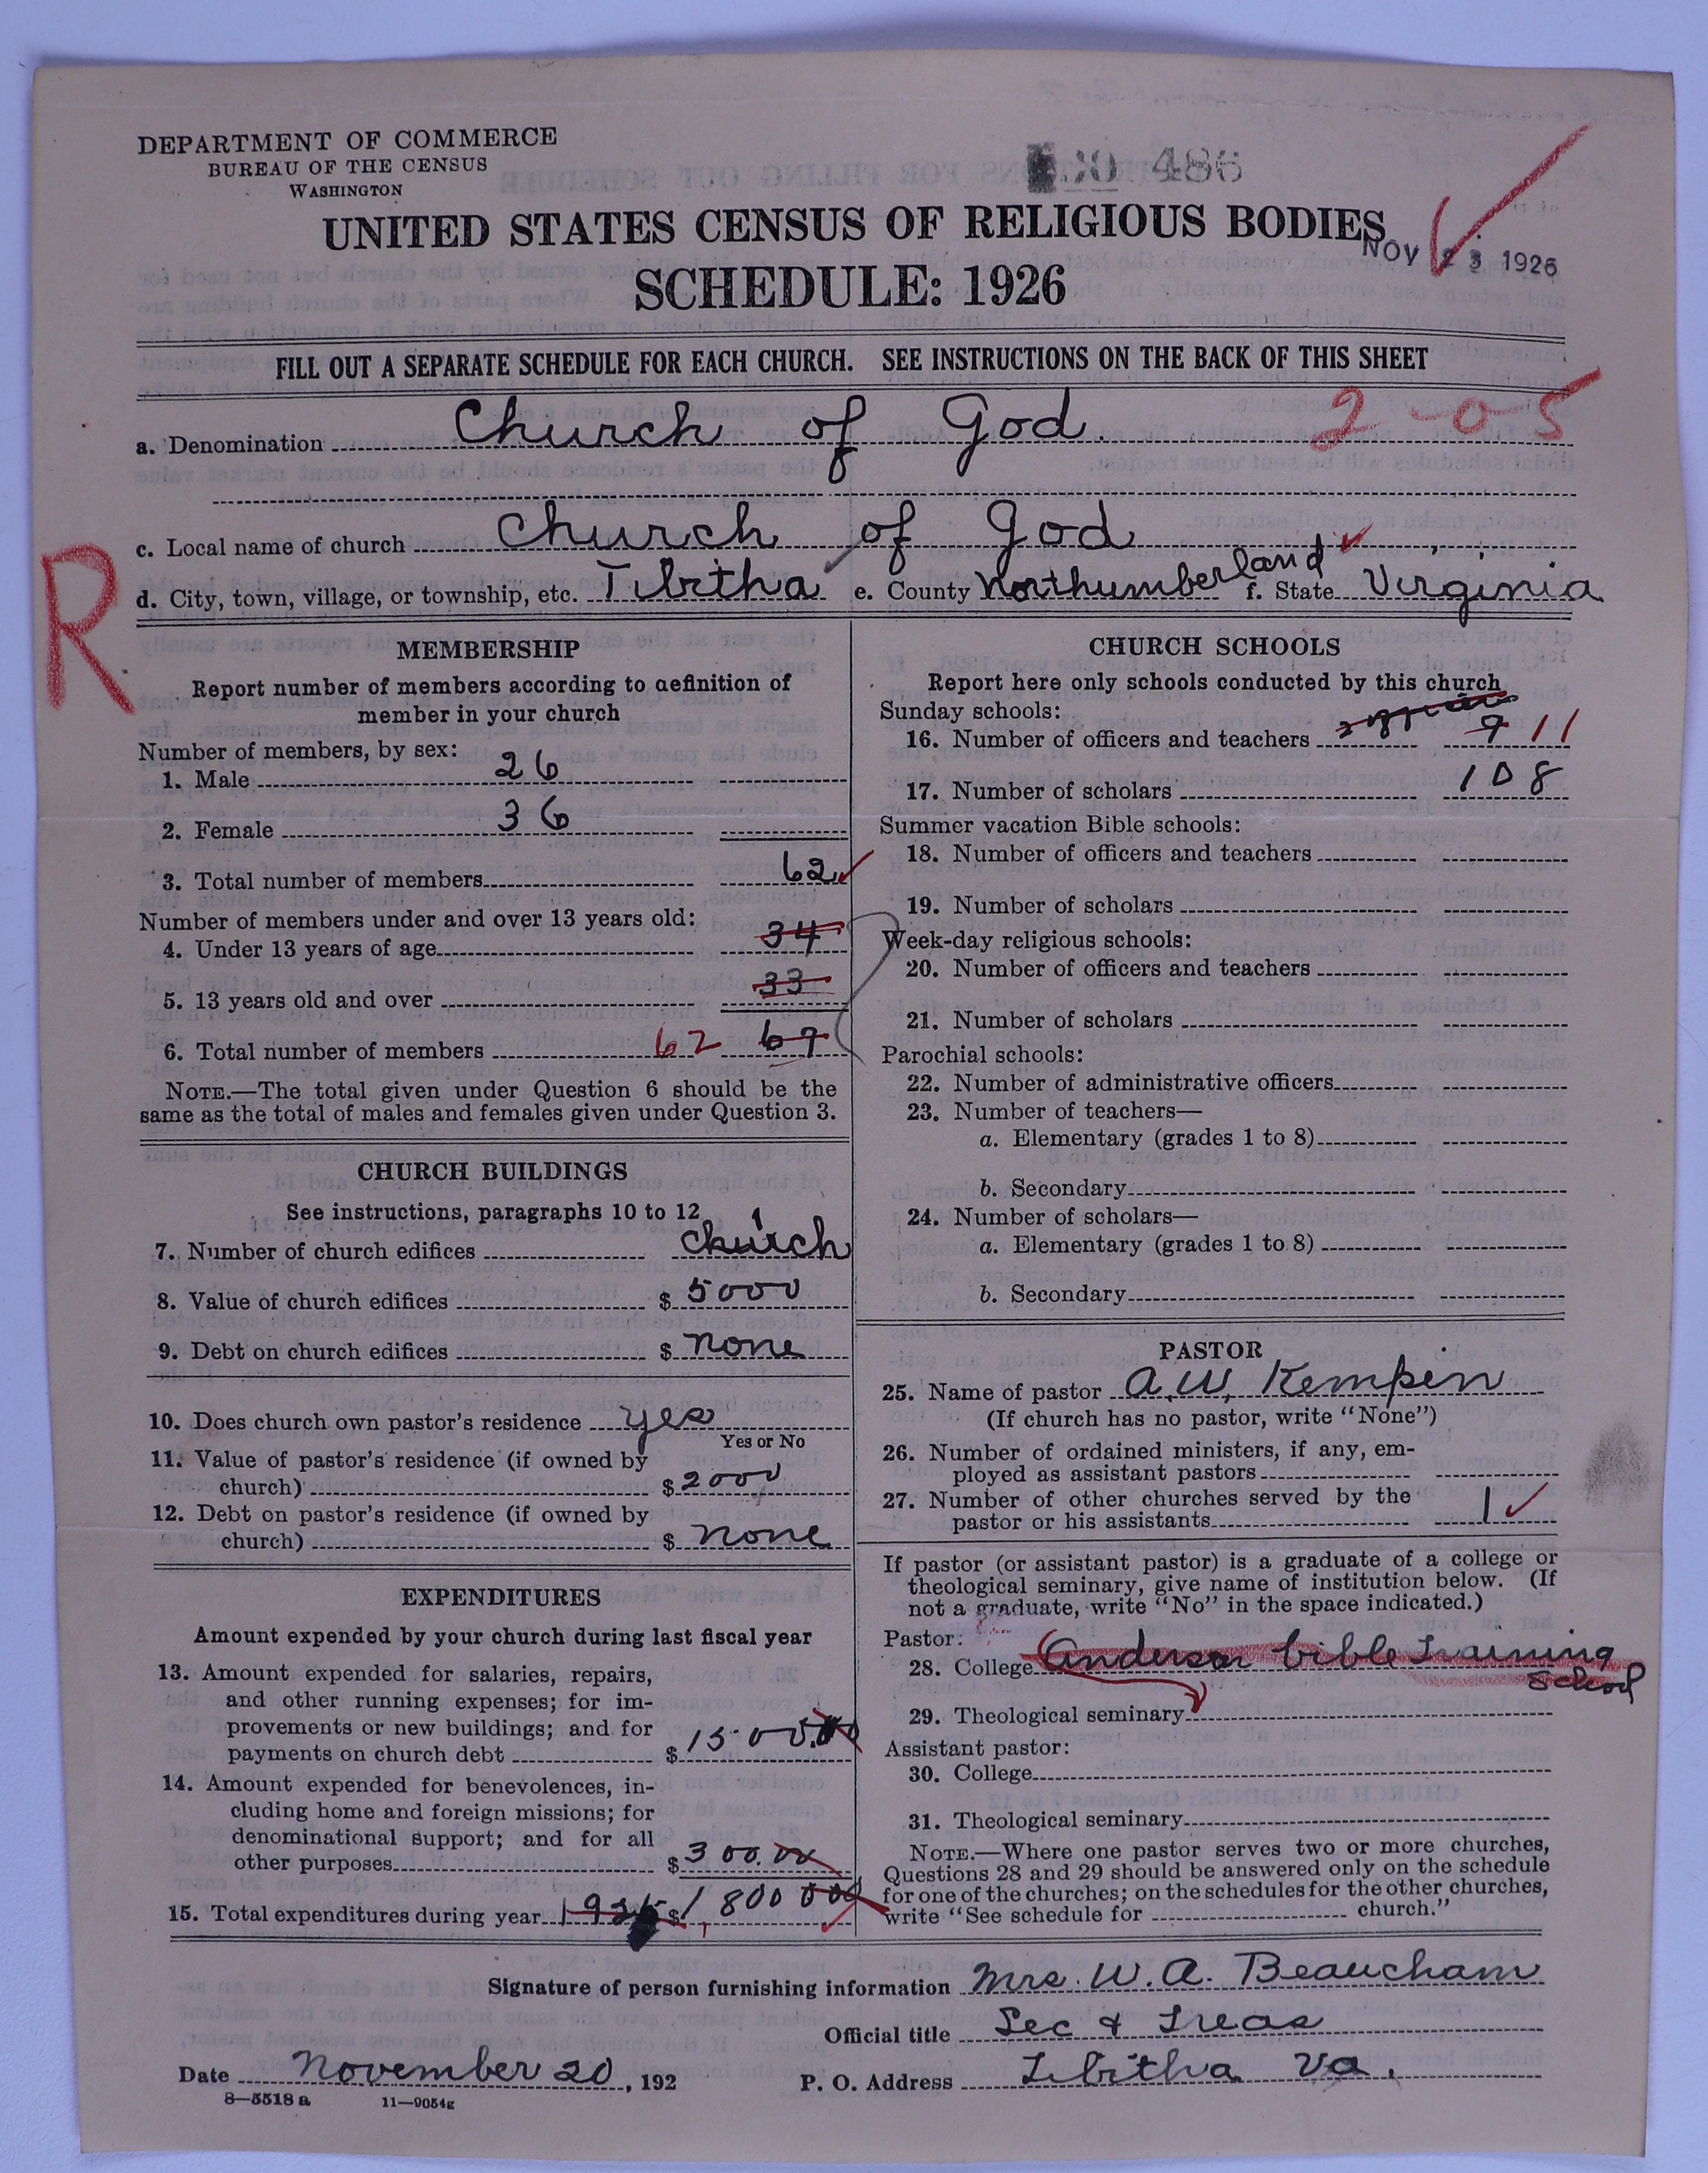 DEPARTMENT OF COMMERCE
BUREAU OF THE CENSUS
WASHINGTON
486
UNITED STATES CENSUS OF RELIGIOUS BODIES
NOV 23 1926
SCHEDULE: 1926
FILL OUT A SEPARATE SCHEDULE FOR EACH CHURCH. SEE INSTRUCTIONS ON THE BACK OF THIS SHEET
a. Denomination Church of God. 2-0-5
c. Local name of church Church of God
R
d. City, town, village, or township, etc. Tibitha e. County Northumberland f. State Virginia
MEMBERSHIP
Report number of members according to definition of
member in your church
Number of members, by sex:
1. Male 26
2. Female 36
3. Total number of members 62
Number of members under and over 13 years old:
4. Under 13 years of age 34
5. 13 years old and over 33
6. Total number of members 62 67
NOTE.—The total given under Question 6 should be the
same as the total of males and females given under Question 3.
CHURCH BUILDINGS
See instructions, paragraphs 10 to 12
7. Number of church edifices 1 church
8. Value of church edifices $ 5000
9. Debt on church edifices $ none
10. Does church own pastor's residence yes
Yes or No
11. Value of pastor's residence (if owned by
church) $ 2000
12. Debt on pastor's residence (if owned by
church) $ none
EXPENDITURES
Amount expended by your church during last fiscal year
13. Amount expended for salaries, repairs,
and other running expenses; for im-
provements or new buildings; and for
payments on church debt $ 1500.00
14. Amount expended for benevolences, in-
cluding home and foreign missions; for
denominational support; and for all
other purposes $ 300.00
15. Total expenditures during year 1925 $ 1,800 00
CHURCH SCHOOLS
Report here only schools conducted by this church
Sunday schools:
16. Number of officers and teachers 9 11
17. Number of scholars 108
Summer vacation Bible schools:
18. Number of officers and teachers
19. Number of scholars
Week-day religious schools:
20. Number of officers and teachers
21. Number of scholars
Parochial schools:
22. Number of administrative officers
23. Number of teachers—
a. Elementary (grades 1 to 8)
b. Secondary
24. Number of scholars—
a. Elementary (grades 1 to 8)
b. Secondary
PASTOR
25. Name of pastor A. W. Kempin
(If church has no pastor, write "None")
26. Number of ordained ministers, if any, em-
ployed as assistant pastors
27. Number of other churches served by the
pastor or his assistants 1
If pastor (or assistant pastor) is a graduate of a college or
theological seminary, give name of institution below. (If
not a graduate, write "No" in the space indicated.)
Pastor:
28. College Anderson bible Training
School
29. Theological seminary
Assistant pastor:
30. College
31. Theological seminary
NOTE.—Where one pastor serves two or more churches,
Questions 28 and 29 should be answered only on the schedule
for one of the churches; on the schedules for the other churches,
write "See schedule for church."
Signature of person furnishing information Mrs. W. A. Beaucham
Official title Sec & Treas
Date November 20, 192 P. O. Address Tibitha Va.
8—5518 a 11—9054g